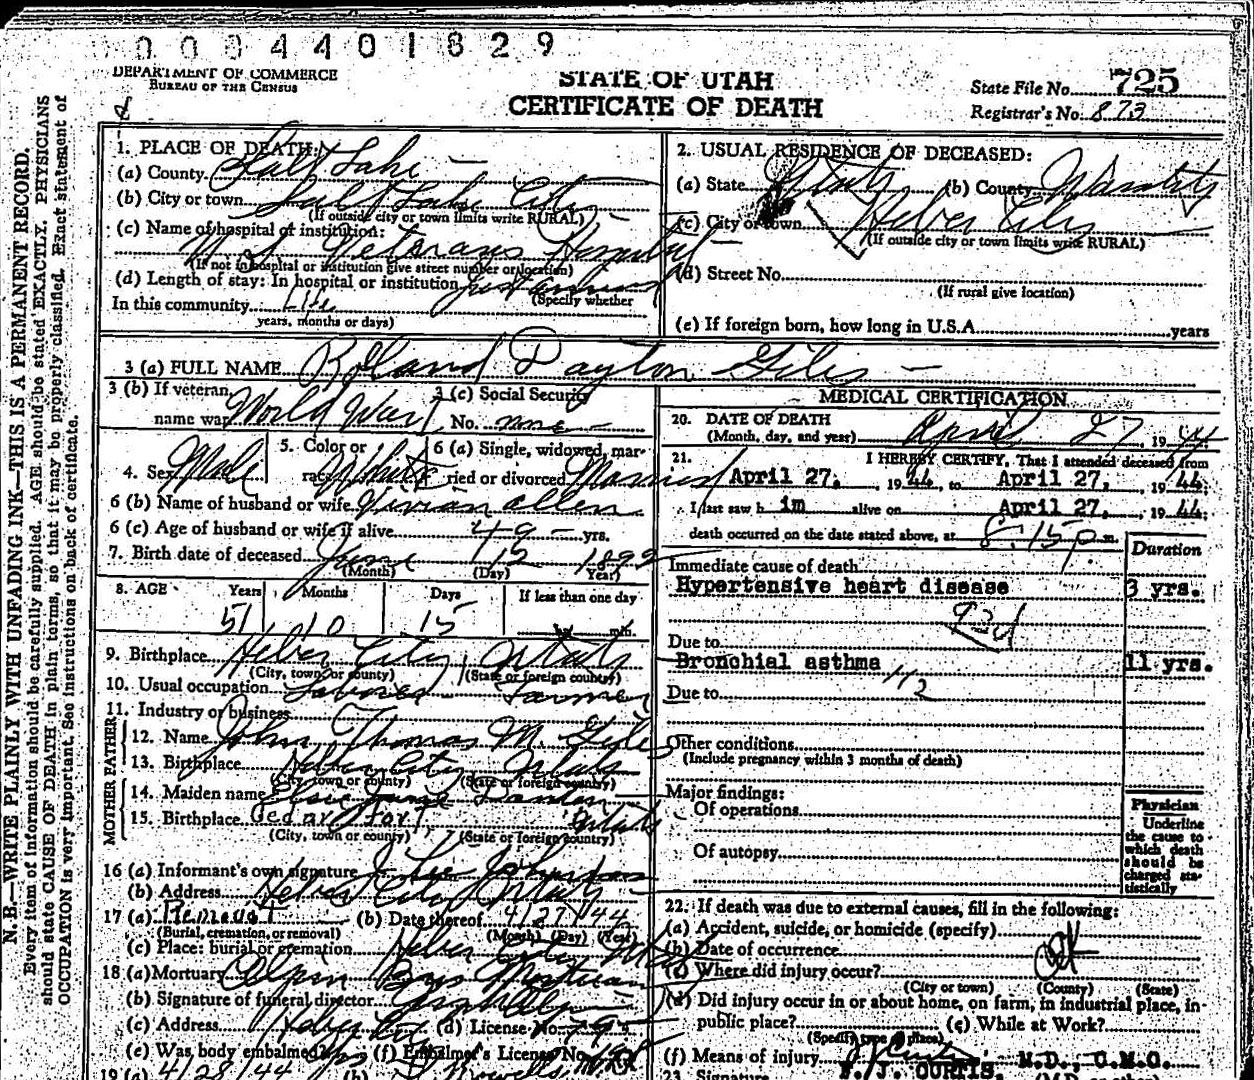 0004401829
DEPARTMENT OF COMMERCE
BUREAU OF THE CENSUS
STATE OF UTAH
CERTIFICATE OF DEATH
State File No. 725
Registrar's No. 873
N. B.—WRITE PLAINLY WITH UNFADING INK—THIS IS A PERMANENT RECORD.
Every item of information should be carefully supplied. AGE should be stated EXACTLY. PHYSICIANS
should state CAUSE OF DEATH in plain terms, so that it may be properly classified. Exact statement of
OCCUPATION is very important. See instructions on back of certificate.
1. PLACE OF DEATH:
(a) County Salt Lake
(b) City or town Salt Lake City
(If outside city or town limits write RURAL)
(c) Name of hospital or institution:
U. S. Veterans Hospital
(If not in hospital or institution give street number or location)
(d) Length of stay: In hospital or institution
(Specify whether
In this community Life
years, months or days)
2. USUAL RESIDENCE OF DECEASED:
(a) State Utah (b) County Wasatch
(c) City or town Heber City
(If outside city or town limits write RURAL)
(d) Street No.
(If rural give location)
(e) If foreign born, how long in U.S.A. years
3 (a) FULL NAME Rolland Dayton Giles
3 (b) If veteran, name war World War I
3 (c) Social Security No. none
4. Sex Male
5. Color or race White
6 (a) Single, widowed, married or divorced Married
6 (b) Name of husband or wife Vivian Allen
6 (c) Age of husband or wife if alive 49 yrs.
7. Birth date of deceased June 12 1892
(Month) (Day) Year)
8. AGE Years Months Days If less than one day
51 10 15 hr. min.
9. Birthplace Heber City, Utah
(City, town or county) (State or foreign country)
10. Usual occupation Laborer Farmer
11. Industry or business
FATHER
12. Name John Thomas M. Giles
13. Birthplace Heber City Utah
(City, town or county) (State or foreign country)
MOTHER
14. Maiden name Elsie Jane
15. Birthplace Cedar Fort Utah
(City, town or county) (State or foreign country)
16 (a) Informant's own signature
(b) Address Heber City Utah
17 (a) Removal (b) Date thereof 4/27/44
(Burial, cremation, or removal) (Month) (Day) (Year)
(c) Place: burial or cremation Heber City Utah
18 (a) Mortuary Olpin Bros Mortuary
(b) Signature of funeral director
(c) Address Heber City (d) License No.
(e) Was body embalmed yes (f) Embalmer's License No.
19 (a) 4/28/44 (b)
MEDICAL CERTIFICATION
20. DATE OF DEATH
(Month, day, and year) April 27 1944
21. I HEREBY CERTIFY, That I attended deceased from
April 27, 1944, to April 27, 1944;
I last saw him alive on April 27, 1944;
death occurred on the date stated above, at 8:15 p m.
Duration
Immediate cause of death
Hypertensive heart disease 3 yrs.
93d
Due to
Bronchial asthma 11 yrs.
112
Due to
Other conditions
(Include pregnancy within 3 months of death)
Major findings:
Of operations
Of autopsy
Physician
Underline
the cause to
which death
should be
charged sta-
tistically
22. If death was due to external causes, fill in the following:
(a) Accident, suicide, or homicide (specify)
(b) Date of occurrence
(c) Where did injury occur?
(City or town) (County) (State)
(d) Did injury occur in or about home, on farm, in industrial place, in
public place? (e) While at Work?
(Specify type of place)
(f) Means of injury
23. Signature F. J. CURTIS, M.D., C.M.O.